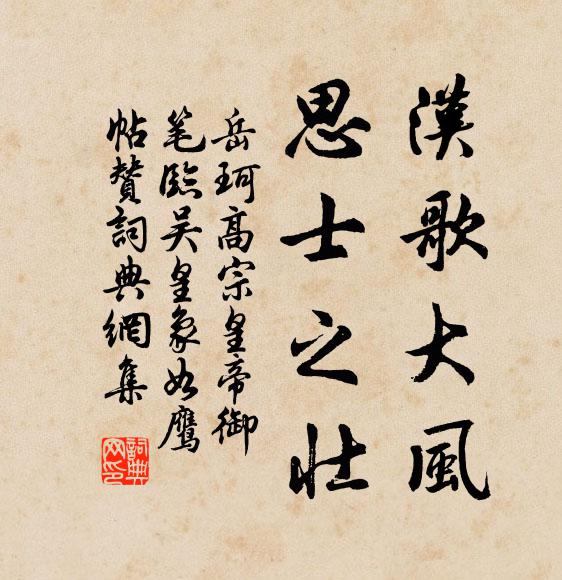 漢歌大風
思士之壯
岳珂高宗皇帝御
笔臨吴皇象如鹰
帖贊詞典網集
詞典
网印